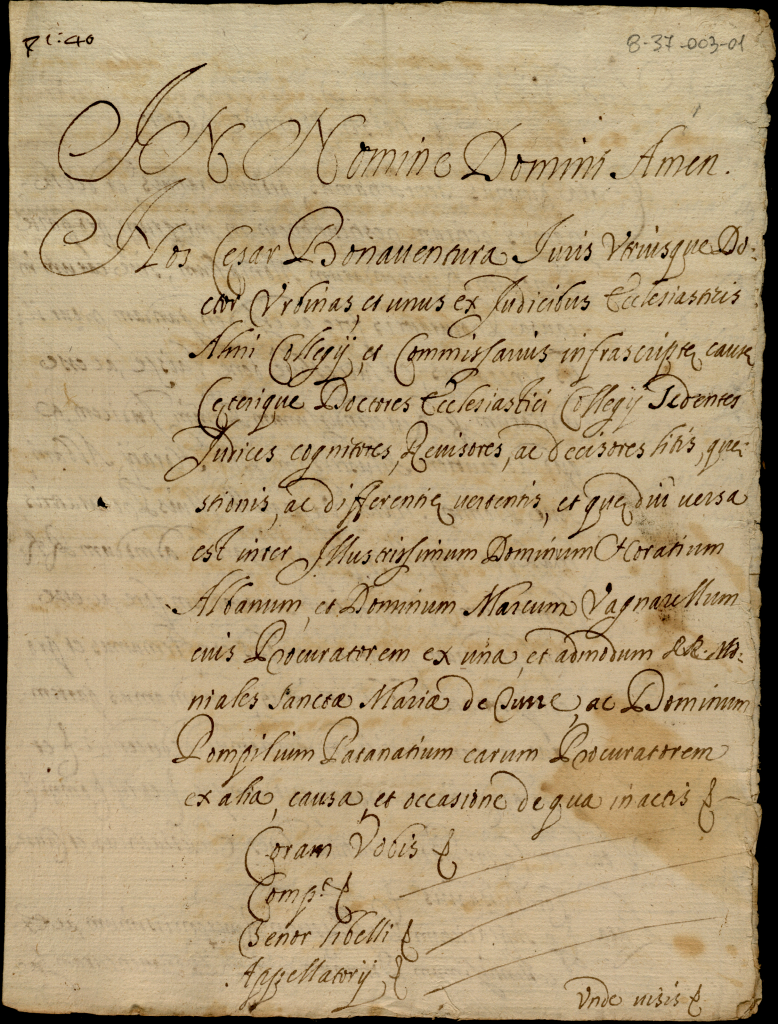 8-37-003-01
IN Nomine Domini Amen.
Nos Cesar Bonauentura Iuris Vtriusque Do:
ctor Vrbinas, et unus ex Iudicibus Ecclesiasticis
Almi Collegij, et Commissarius infrascriptę cause
Ceterique Doctores Ecclesiastici Collegij Sedentes
Iudices cognitores, Reuisores, ac decisores litis, que:
stionis, ac differentię uertentis, et que diu uersa
est inter Illustrissimum Dominum Horatium
Albanum, et Dominum Marcum Vagnarellum
eius Procuratorem ex una, et admodum RR. Mo:
niales Sanctæ Mariæ de Turre, ac Dominum
Pompilium Patanatium earum Procuratorem
ex alia, causa, et occasione de qua in actis
Coram Vobis
Comp.t
Tenor libelli
Appellatorij
Vnde uisis